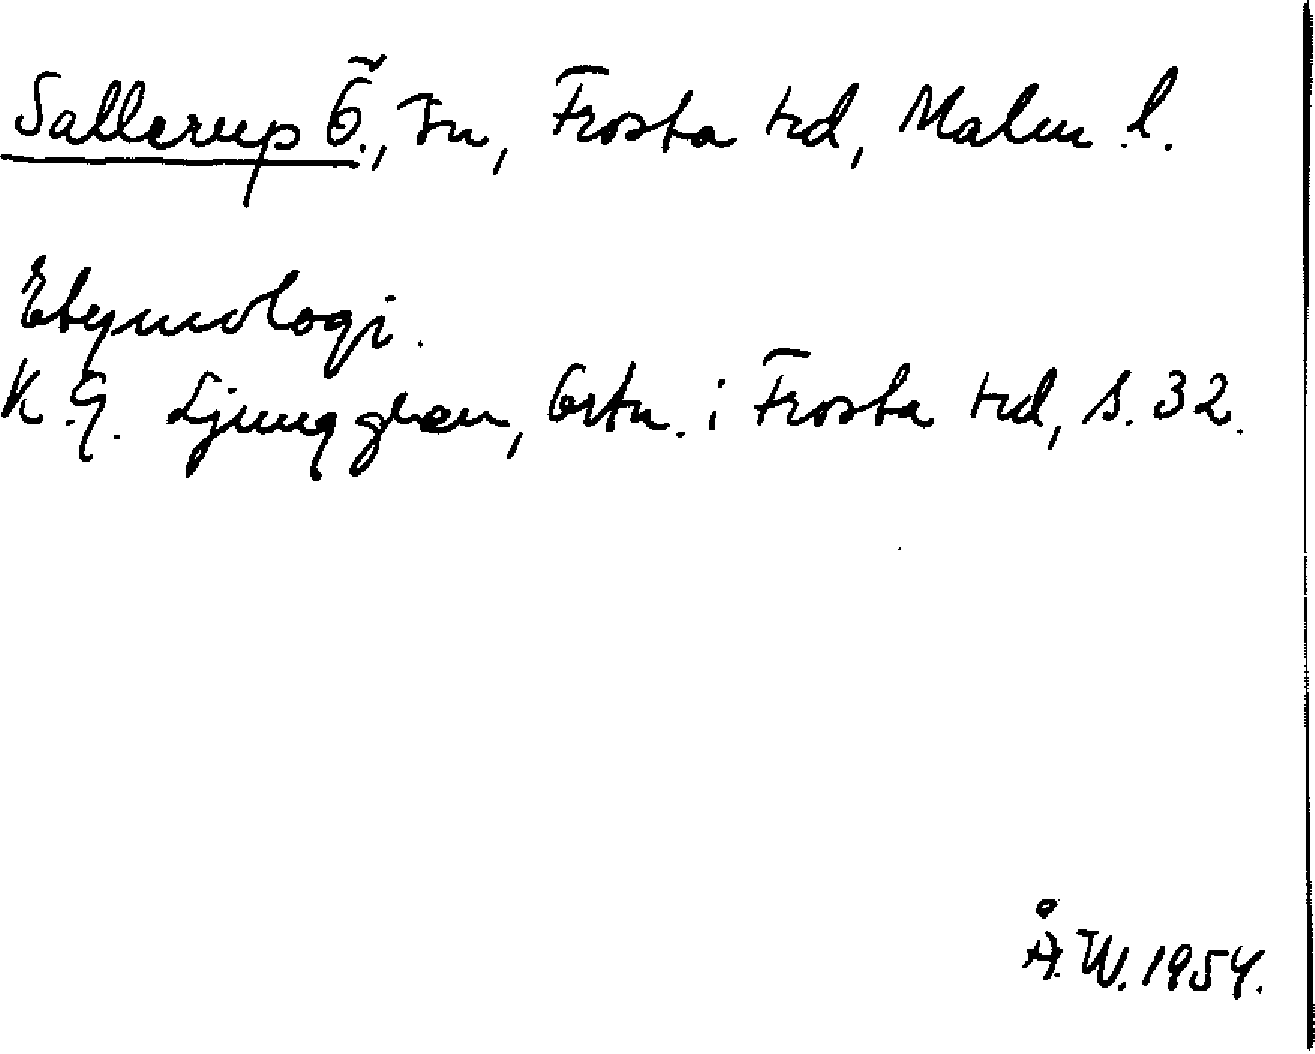 Sallerup Ö., Fn, Frosta hd, Malm. l.
Etymologi.
K. G. Ljunggren, Ortn. i Frosta hd, s. 32.
Å. W. 1954.